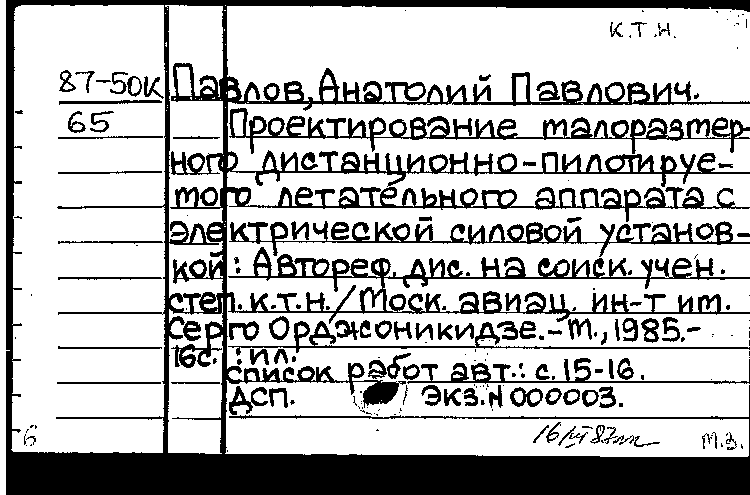 к.т.н.
87-50к Павлов, Анатолий Павлович.
65 Проектирование малоразмер-
ного дистанционно-пилотируе-
мого летательного аппарата с
электрической силовой установ-
кой: Автореф. дис. на соиск. учен.
степ. к.т.н. / Моск. авиац. ин-т им.
Серго Орджоникидзе. - М., 1985. -
16с. : ил.
список работ авт.: с. 15-16.
ДСП. Экз. N 000003.
6 м.з.